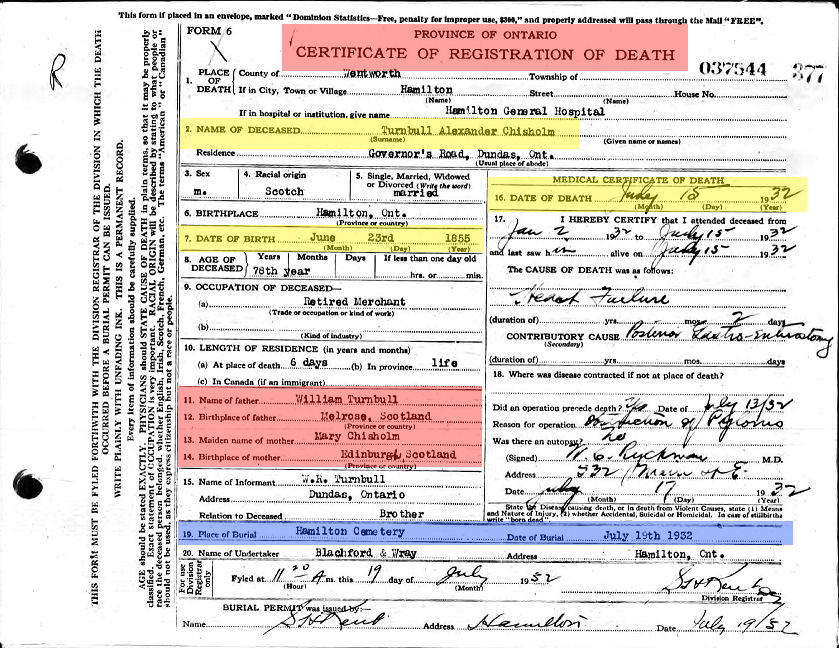 This form if placed in an envelope, marked "Dominion Statistics—Free, penalty for improper use, $300," and properly addressed will pass through the Mail "FREE".
THIS FORM MUST BE FYLED FORTHWITH WITH THE DIVISION REGISTRAR OF THE DIVISION IN WHICH THE DEATH
OCCURRED BEFORE A BURIAL PERMIT CAN BE ISSUED.
WRITE PLAINLY WITH UNFADING INK. THIS IS A PERMANENT RECORD.
Every item of information should be carefully supplied.
AGE should be stated EXACTLY. PHYSICIANS should STATE CAUSE OF DEATH in plain terms, so that it may be properly
classified. Exact statement of OCCUPATION is very important. RACIAL ORIGIN will be described by stating to what people or
race the deceased person belonged, whether English, Irish, Scotch, French, German, etc. The terms "American" or "Canadian"
should not be used, as they express citizenship but not a race or people.
R
FORM 6
PROVINCE OF ONTARIO
CERTIFICATE OF REGISTRATION OF DEATH
037544 377
1. PLACE OF DEATH
County of Wentworth Township of
If in City, Town or Village Hamilton Street House No.
(Name) (Name)
If in hospital or institution, give name Hamilton General Hospital
2. NAME OF DECEASED Turnbull Alexander Chisholm
(Surname) (Given name or names)
Residence Governor's Road, Dundas, Ont.
(Usual place of abode)
3. Sex
m.
4. Racial origin
Scotch
5. Single, Married, Widowed
or Divorced (Write the word)
married
6. BIRTHPLACE Hamilton, Ont.
(Province or country)
7. DATE OF BIRTH June 23rd 1855
(Month) (Day) (Year)
8. AGE OF DECEASED
Years Months Days If less than one day old
78th year hrs. or min.
9. OCCUPATION OF DECEASED—
(a) Retired Merchant
(Trade or occupation or kind of work)
(b)
(Kind of industry)
10. LENGTH OF RESIDENCE (in years and months)
(a) At place of death 6 days (b) In province life
(c) In Canada (if an immigrant)
11. Name of father William Turnbull
12. Birthplace of father Melrose, Scotland
(Province or country)
13. Maiden name of mother Mary Chisholm
14. Birthplace of mother Edinburg, Scotland
(Province or country)
15. Name of Informant W.R. Turnbull
Address Dundas, Ontario
Relation to Deceased Brother
MEDICAL CERTIFICATE OF DEATH
16. DATE OF DEATH July 15 1932
(Month) (Day) (Year)
17. I HEREBY CERTIFY that I attended deceased from
Jan 2 1932 to July 15 1932
and last saw him alive on July 15 1932
The CAUSE OF DEATH was as follows:
Heart Failure
(duration of) yrs. mos. 2 days
CONTRIBUTORY CAUSE Posterior Gastro-enterostomy
(Secondary)
(duration of) yrs. mos. days
18. Where was disease contracted if not at place of death?
Did an operation precede death? Date of July 13/32
Reason for operation Obstruction of Pylorus
Was there an autopsy? no
(Signed) M.D.
Address 532 Main St E.
Date July 17 1932
(Month) (Day) (Year)
State Disease causing death, or in death from Violent Causes, state (1) Means
and Nature of Injury, (2) whether Accidental, Suicidal or Homicidal. In case of stillbirths
write "born dead".
19. Place of Burial Hamilton Cemetery Date of Burial July 19th 1932
20. Name of Undertaker Blachford & Wray Address Hamilton, Ont.
For use Division Registrar Only
Fyled at 11 30 A.m. this 19 day of July 1932
(Hour) (Month)
Division Registrar
BURIAL PERMIT was issued by:—
Name Address Hamilton Date July 19/32